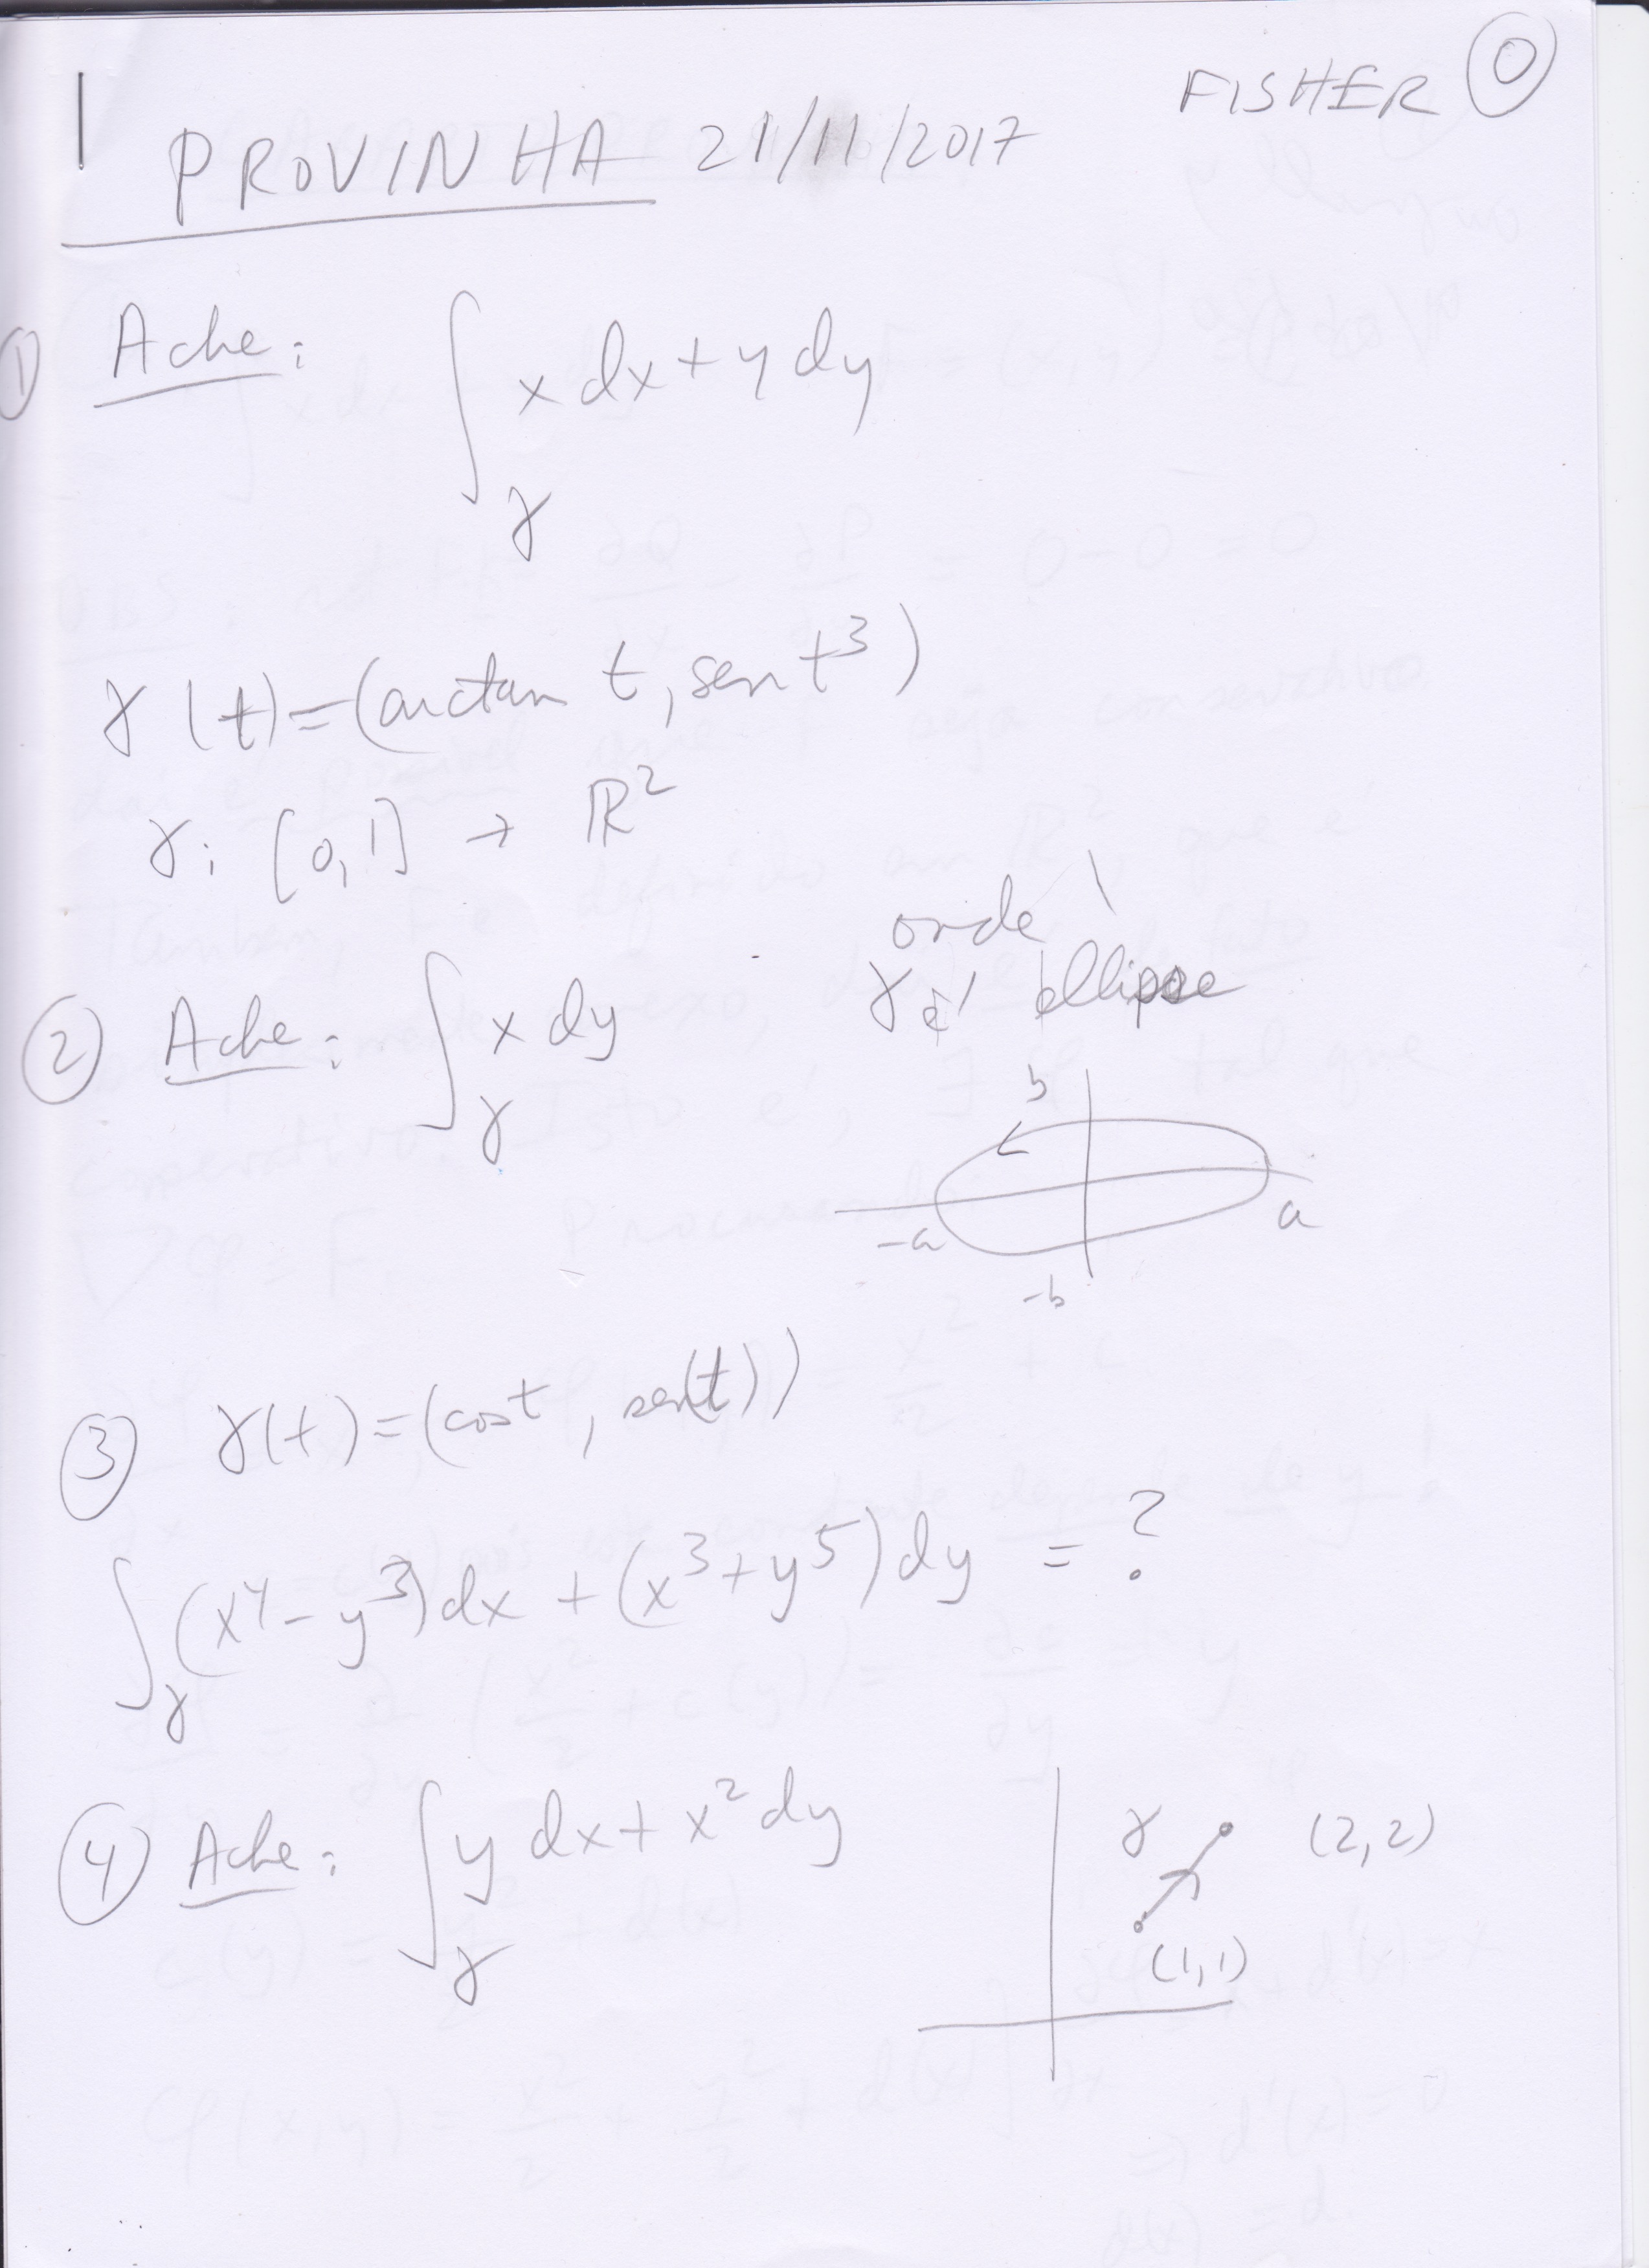 FISHER 0
1 PROVINHA 21/11/2017
① Ache: ∫_γ x dx + y dy
γ(t) = (arctan t, sen t³)
γ: [0,1] → ℝ²
② Ache: ∫_γ x dy
onde
γ é ellipse
b
-a a
-b
③ γ(t) = (cos t, sen(t))
∫_γ (x⁴ - y³) dx + (x³ + y⁵) dy = ?
④ Ache: ∫_γ y dx + x² dy
γ (2,2)
(1,1)